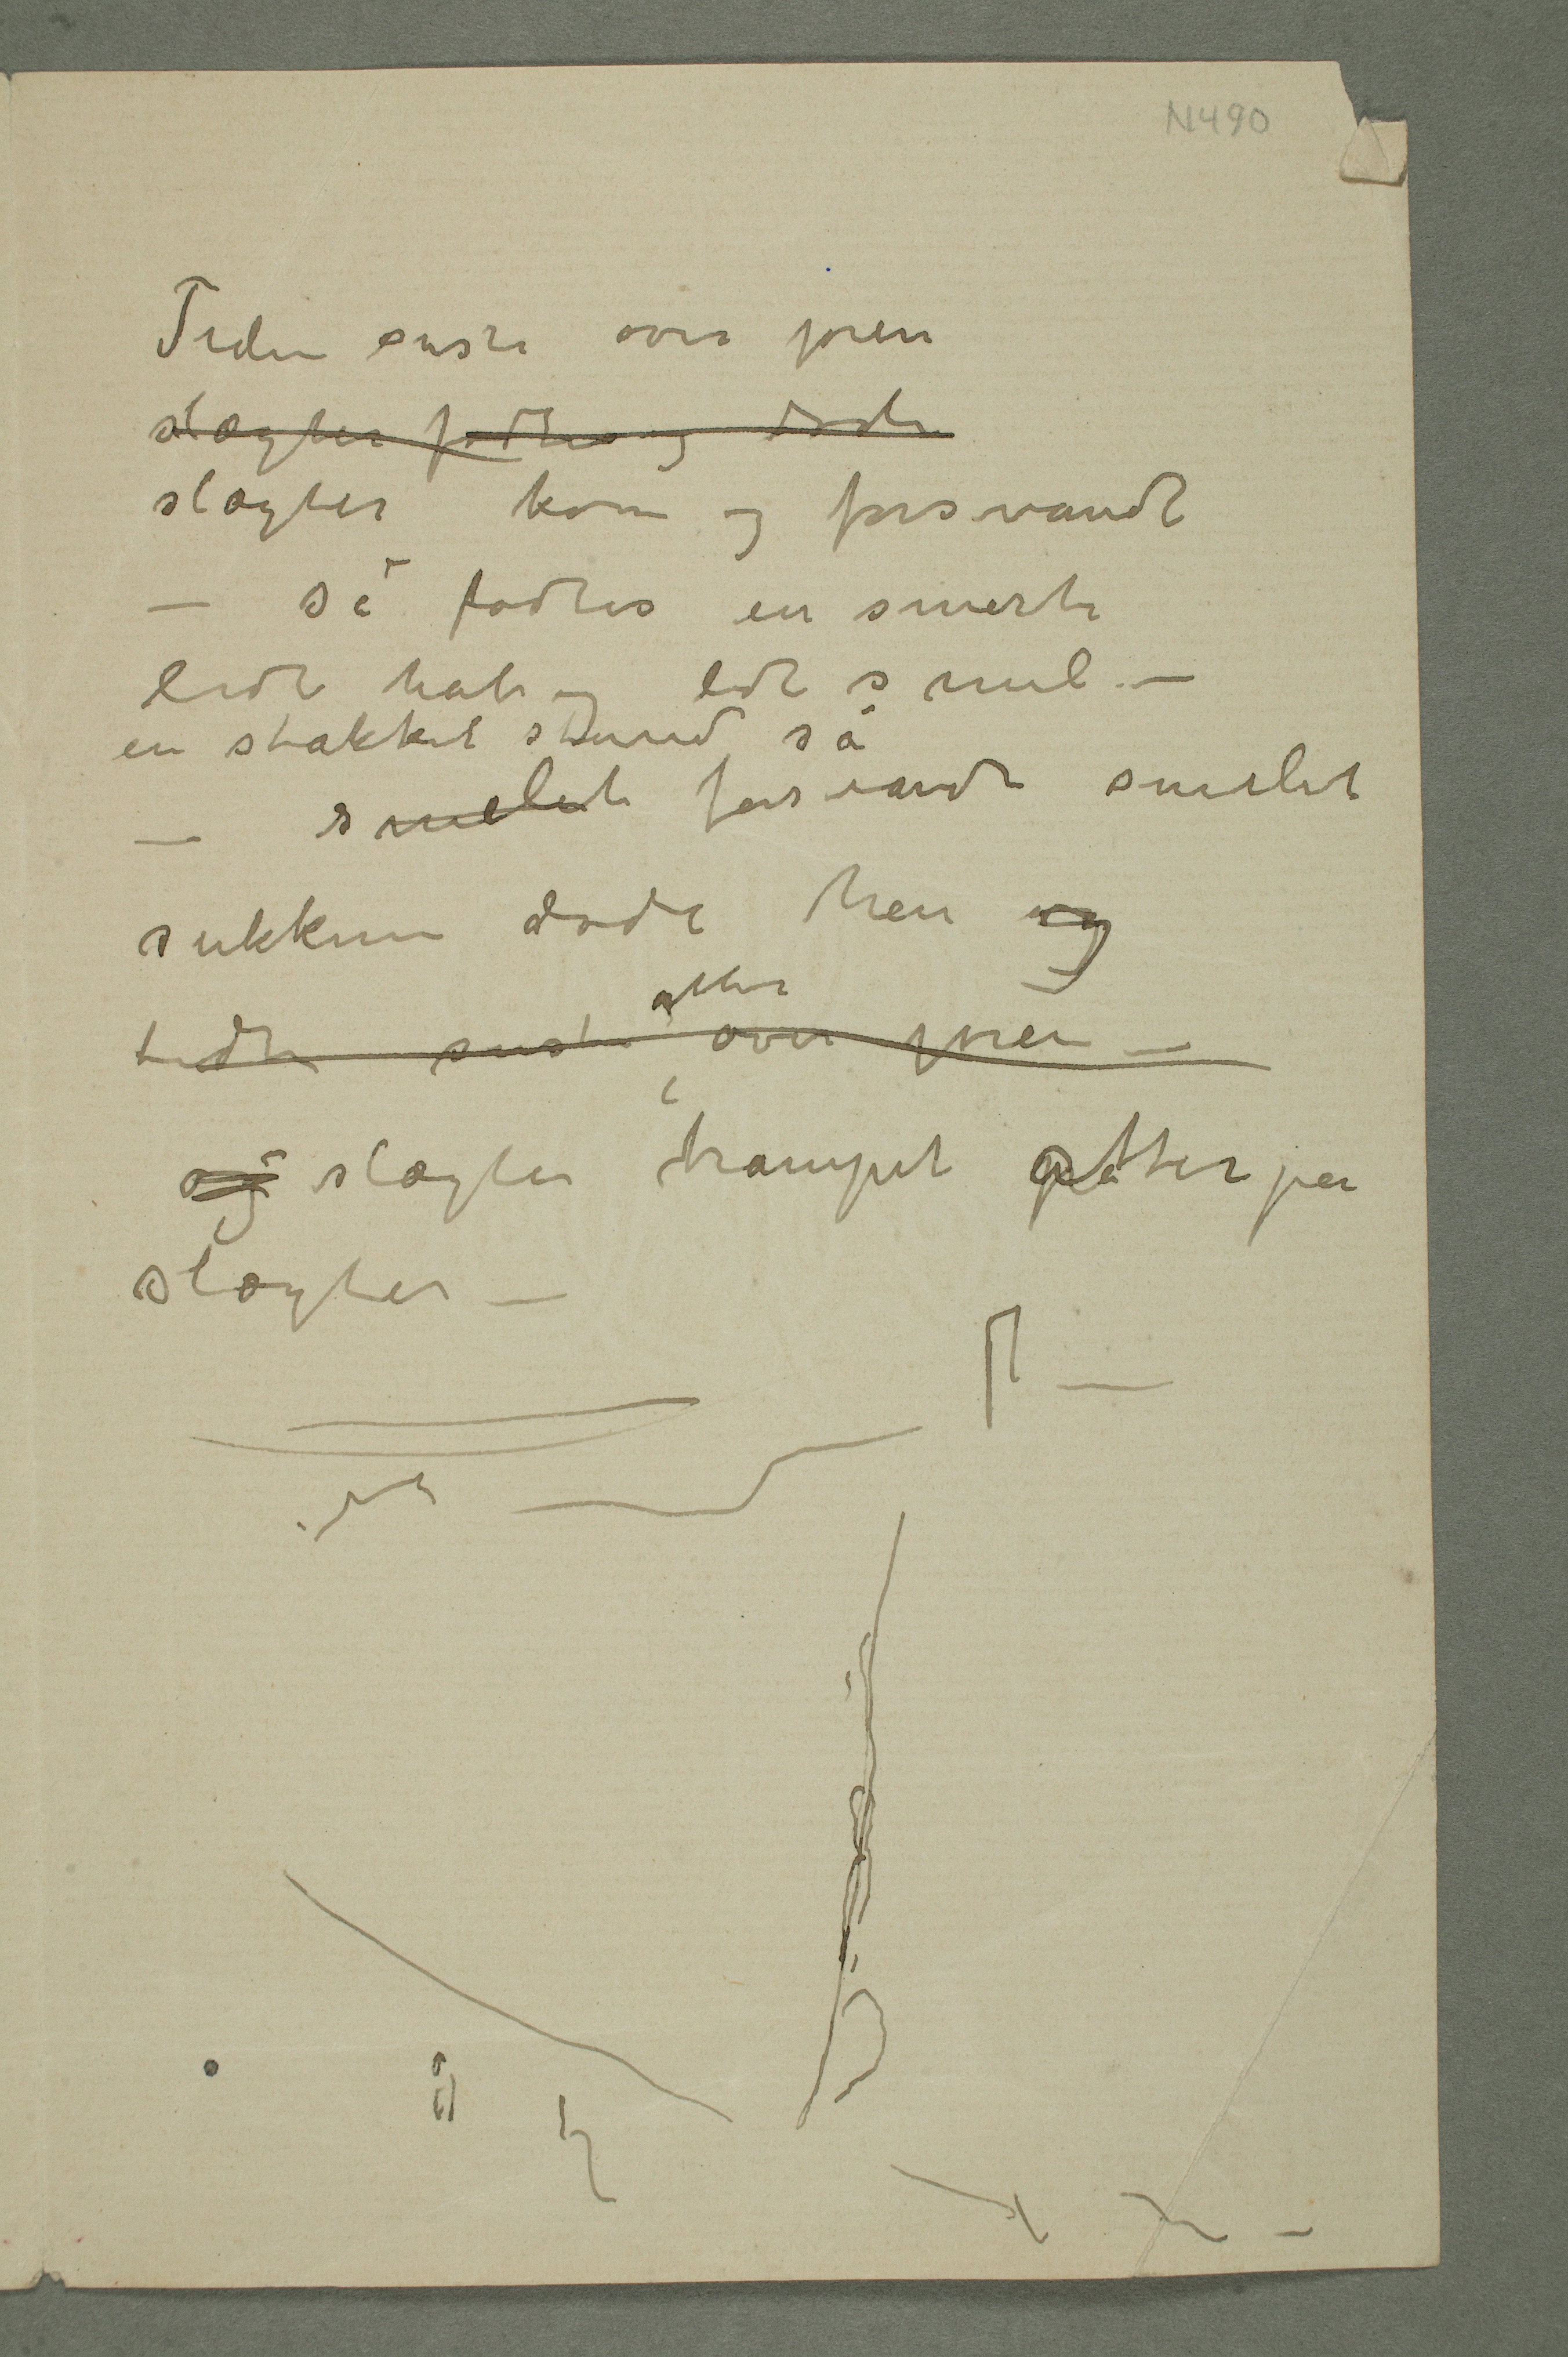 N490
Tiden suste over joren
slægter fødtes og døde
slægter kom og forsvandt
– så fødtes en smerte
lidt håb og lidt smil –
en stakket stund så
– smilet forsvandt smilet
sukkene døde hen og
tiden suste atter over joren –
og slægter trampet atter på
slægter –